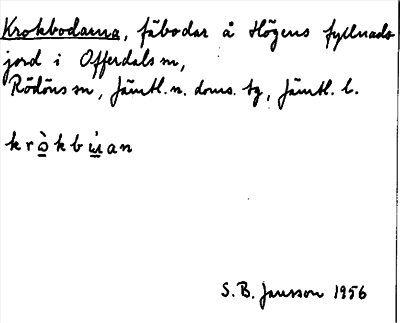 Krokbodarna, fäbodar å Högens fyllnads
jord i Offerdals sn,
Rödöns sn, Jämtl. n. doms. tg, Jämtl. l.
kròkbùan
S. B. Jansson 1956